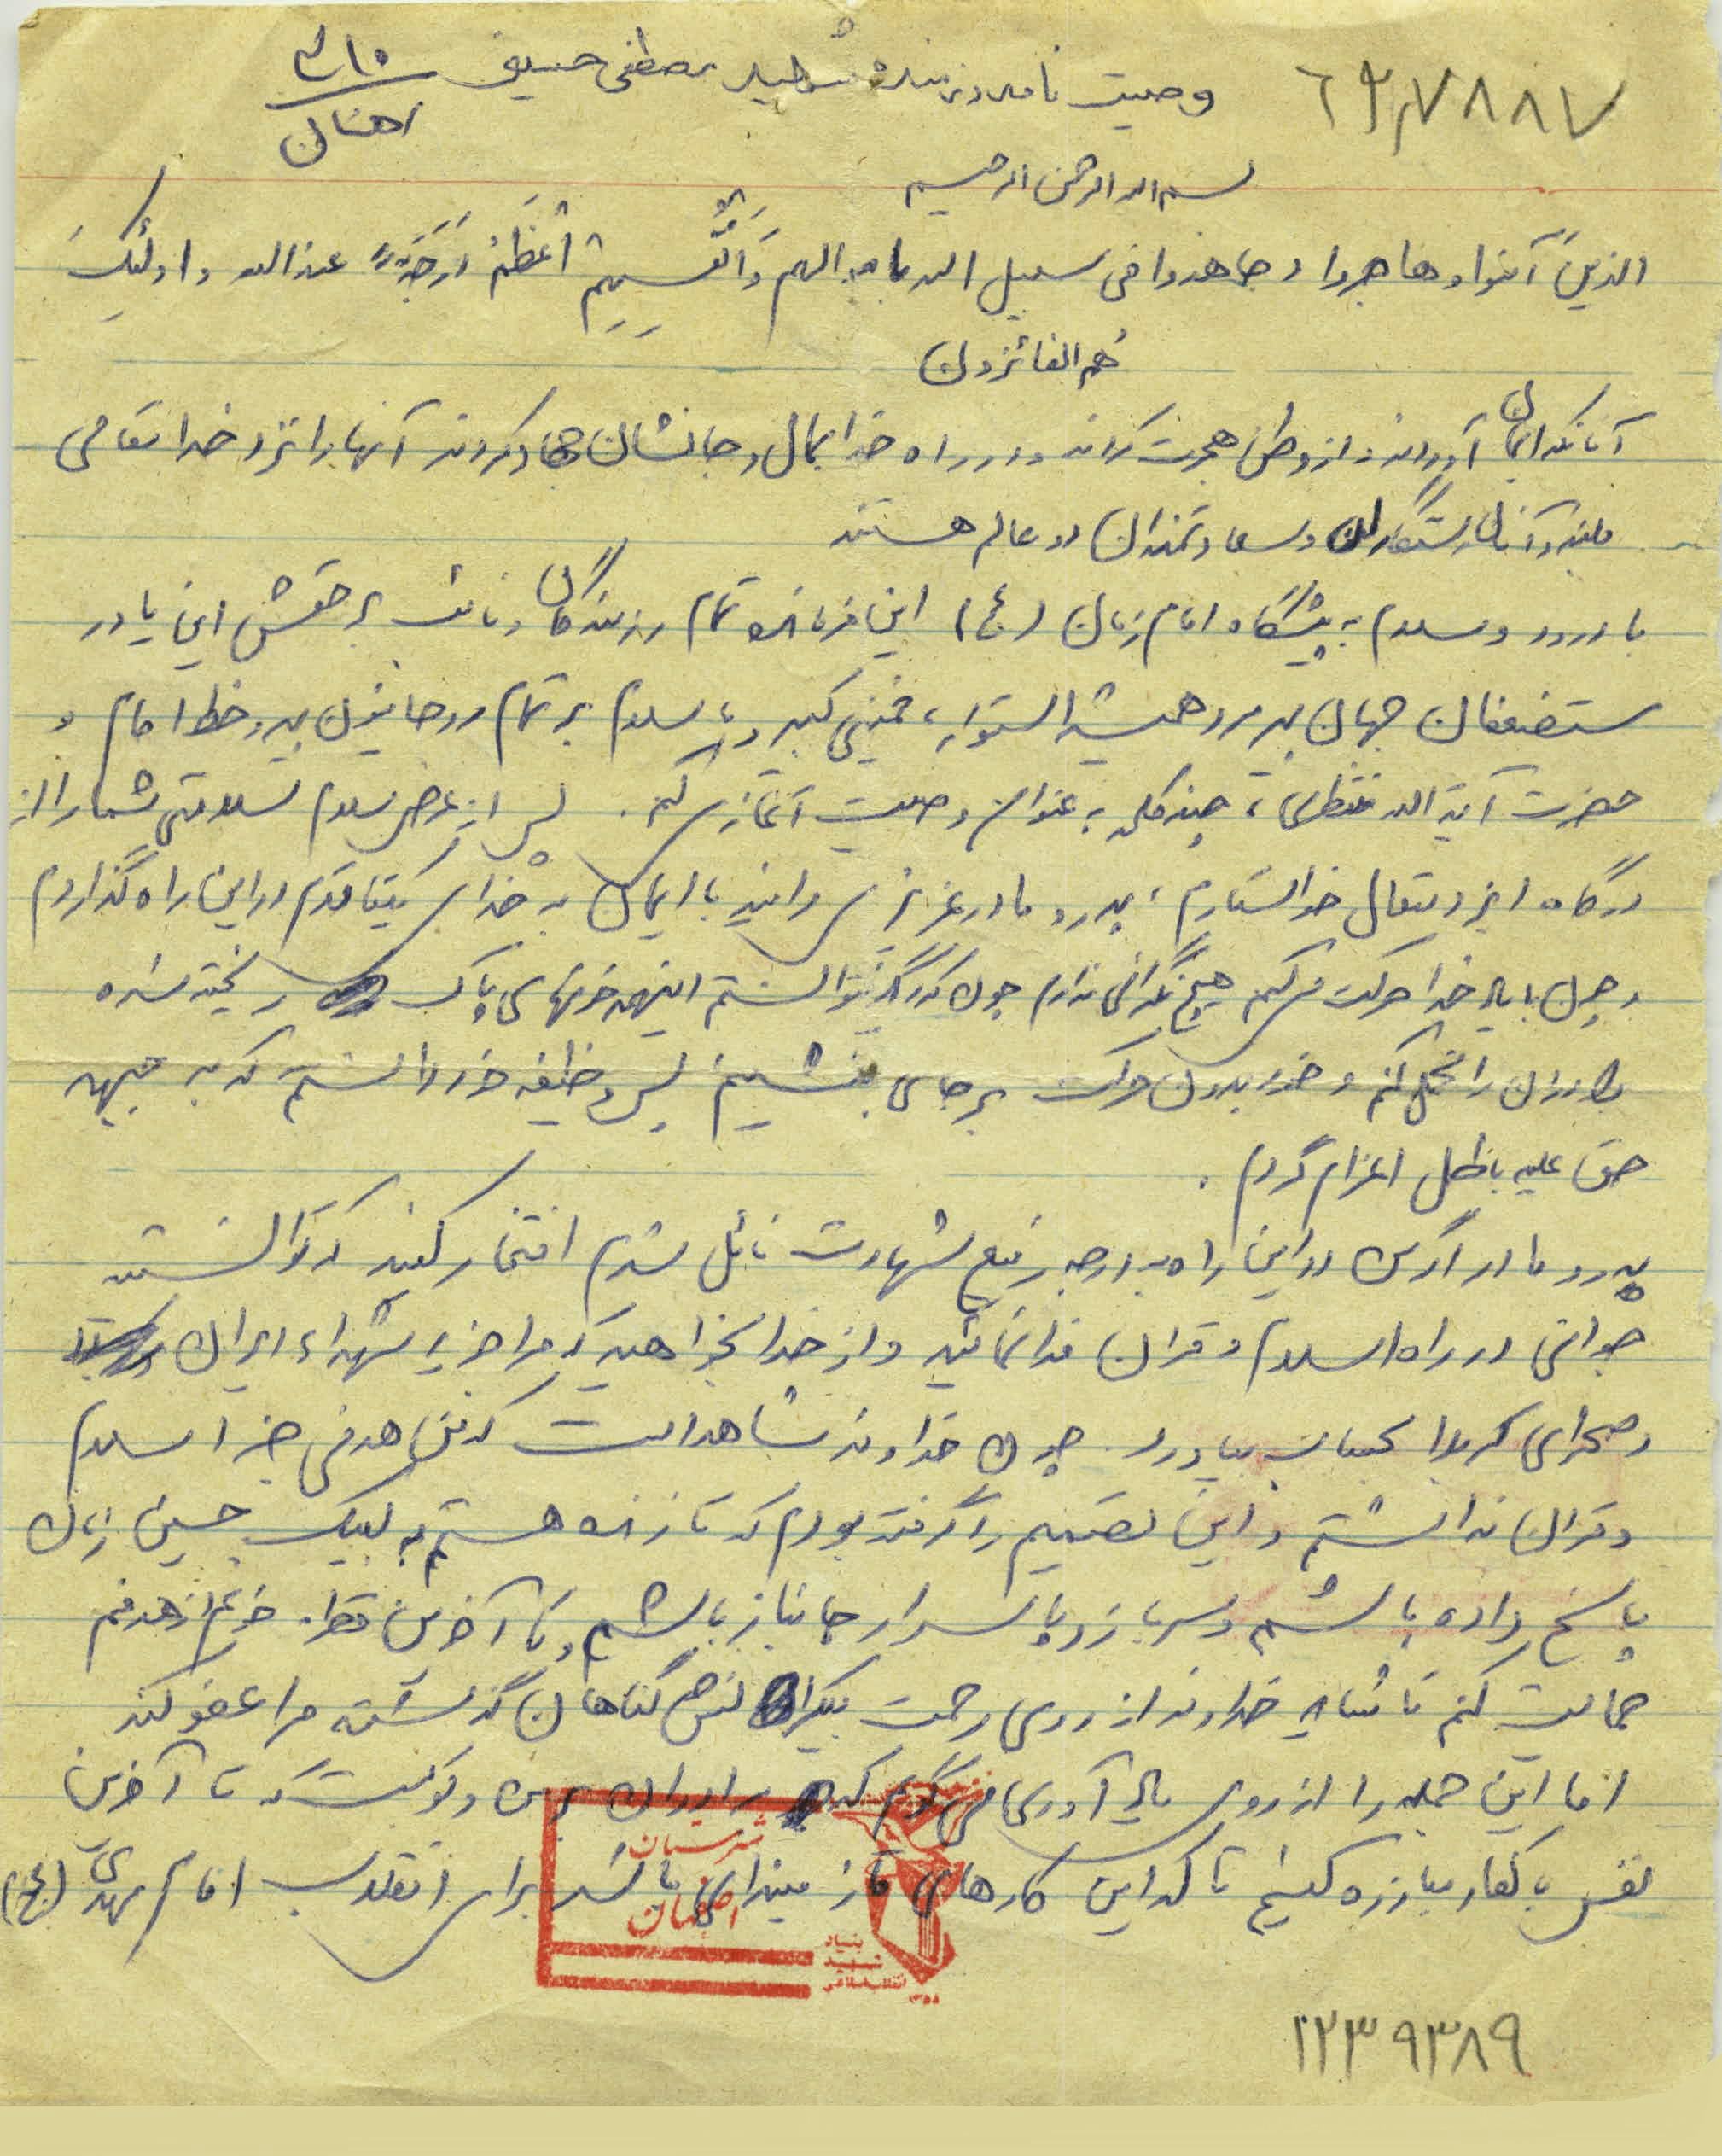 ۶۳۷۸۸۷
وصیت نامه رزمنده شهید مصطفی حسینی
بسم الله الرحمن الرحیم
الذینَ آمنوا و هاجروا و جاهدوا فی سبیل الله باموالهم وَ اَنْفُسِهِم اَعْظَمُ دَرَجَةً عندالله و اولئِکَ
هُم الفائزون
آنانکه ایمان آوردند و از وطن هجرت کردند و در راه خدا بمال و جانشان جهاد کردند آنها را نزد خدا مقامی
بلند و آنان رستگاران و سعادتمندان دو عالم هستند
با درود و سلام به پیشگاه امام زمان (عج) این فرمانده تمام رزمندگان و نائب برحقش این یاور
مستضعفان جهان پیر مرد همیشه استوار، خمینی کبیر و با سلام بر تمام روحانیون پیرو خط امام و
حضرت آیة الله منتظری، چند کلمه به عنوان وصیت آغاز می کنم. پس از عرض سلام سلامتی شما را از
درگاه ایزد متعال خواستارم، پدر و مادر عزیز می دانید با ایمان به خدای یکتا قدم در این راه گذاردم
و چون با یاد خدا حرکت می کنم هیچ نگرانی ندارم چون که دیگر نتوانستم اینهمه خونهای پاک ریخته شده
برادران را تحمل کنم و خود بدون حرکت بر جای بنشینم پس وظیفه خود دانستم که به جبهه
حق علیه باطل اعزام گردم.
پدر و مادر اگر من در این راه به درجه رفیع شهادت نائل شدم افتخار کنید که توانستید
جوانی در راه اسلام و قرآن فدا نمائید و از خدا بخواهید که مرا جزء شهداء ایران
و صحرای کربلا بحساب بیاورد. چون خداوند شاهد است که من هدفی جز اسلام
و قرآن نداشتم و این تصمیم را گرفته بودم که تا زنده هستم به لبیک حسین زمان
پاسخ داده باشم و سرباز و پاسدار جانباز باشم و تا آخرین قطره خونم از هدفم
حمایت کنم تا شاید خداوند از روی رحمت بیکران گناهان گذشته مرا عفو کند
اما این جمله را از روی یادآوری می گویم که برادران بر من و توست که تا آخرین
نفس با کفار مبارزه کنیم تا که این کارهای ما زمینه ای باشد برای انقلاب امام مهدی (عج)
شهرستان
اصفهان
بنیاد
شهید
انقلاب اسلامی
۱۲۳۹۳۸۹